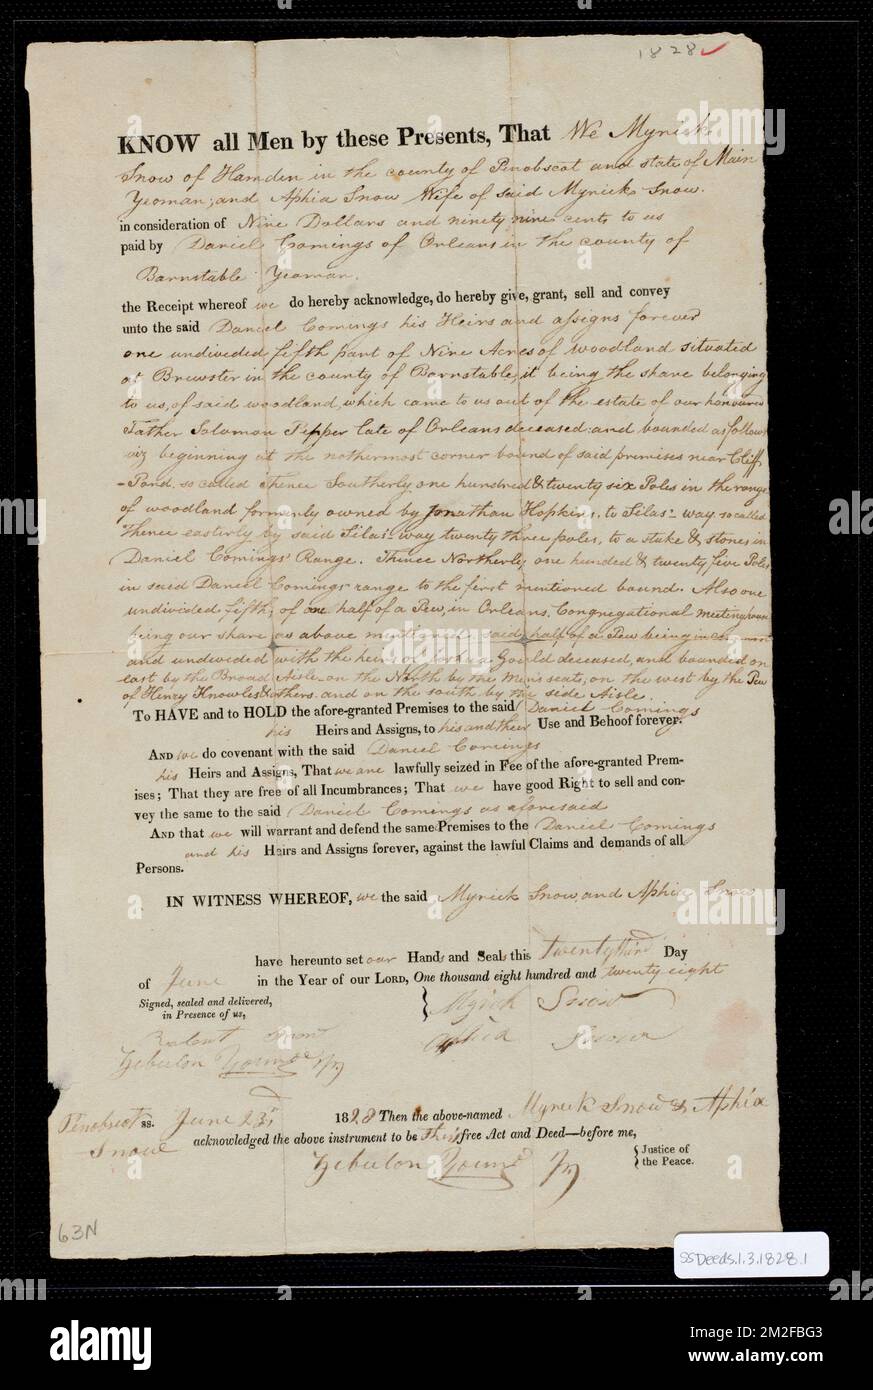 1828
KNOW all Men by these Presents, That We Myrick
Snow of Hamden in the county of Penobscot and state of Main
Yeoman; and Aphia Snow Wife of said Myrick Snow.
in consideration of Nine Dollars and ninety nine cents to us
paid by Daniel Comings of Orleans in the county of
Barnstable Yeoman.
the Receipt whereof we do hereby acknowledge, do hereby give, grant, sell and convey
unto the said Daniel Comings his Heirs and assigns forever
one undivided fifth part of Nine Acres of woodland situated
at Brewster in the county of Barnstable, it being the share belonging
to us, of said woodland, which came to us out of the estate of our honoured
Father Solomon Pepper late of Orleans deceased: and bounded as follows
viz beginning at the nothermost corner bound of said premises near Cliff
-Pond. so called Thence Southerly one hundred & twenty six Poles in the range
of woodland formerly owned by Jonathan Hopkins, to Silas- way so called
thence easterly by said Silas- way twenty three poles, to a stake & stones in
Daniel Comings' Range. Thence Northerly one hundred & twenty five Poles
in said Daniel Comings- range to the first mentioned bound. Also one
undivided fifth, of one half of a Pew, in Orleans. Congregational meetinghouse
being our share as above mentioned. said half of a Pew being in common
and undivided with the heirs of Joshua Gould deceased, and bounded on
east by the Broad Aisle on the North by the Men's seats, on the west by the Pew
of Henry Knowles & others. and on the south by the side Aisle.
To HAVE and to HOLD the afore-granted Premises to the said Daniel Comings
his Heirs and Assigns, to his and their Use and Behoof forever.
AND we do covenant with the said Daniel Comings
his Heirs and Assigns, That we are lawfully seized in Fee of the afore-granted Prem-
ises; That they are free of all Incumbrances; That we have good Right to sell and con-
vey the same to the said Daniel Comings as aforesaid
AND that we will warrant and defend the same Premises to the Daniel Comings
and his Heirs and Assigns forever, against the lawful Claims and demands of all
Persons.
IN WITNESS WHEREOF, we the said Myrick Snow, and Aphia Snow
have hereunto set our Hands and Seals this twenty third Day
of June in the Year of our LORD, One thousand eight hundred and twenty eight
Signed, sealed and delivered,
in Presence of us,
Myrick Snow
Aphia Snow
Robert Snow
Zebulon Young Jr
Penobscot ss. June 23d 1828 Then the above-named Myrick Snow & Aphia
Snow acknowledged the above instrument to be Their free Act and Deed—before me,
Zebulon Young Jr Justice of
the Peace.
63N
SSDeeds.1.3.1828.1
alamy
Image ID: 2M2FBG3
www.alamy.com